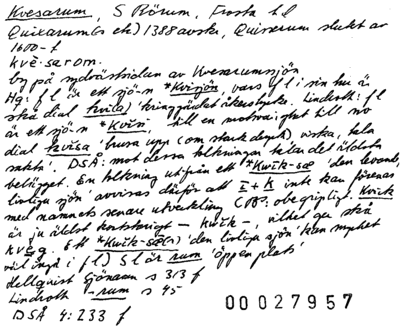 Kvesarum, S Rörum, Frosta hd
Quikarum (s ck) 1388 avskr, Quiserum slutet av
1600-t
kvè·sarom.
by på nydvästsidan av Kvesarumsjön
Hg: fl är ett sjö-n *Kvisjön, vars fl i sin tur är
skå dial kvia) kringgärdat åkerstycke. Lindroth: fl
är ett sjö-n *Kvisir till en motsvarighet till no
dial kvisa 'brusa upp (om stark dryck) viska, tala
sakta'. DSÅ: mot dessa tolkningar talar det äldsta
belägget. En tolkning utifrån ett *Kwik-sæ 'den levande,
livliga sjön' avvisas därför att i + k inte kan förenas
med namnets senare utveckling (obs. obegripligt. Kvick
är ju äldst kortstavigt - kwik-, vilket ger skå
kveg. Ett *Kwik-sæ(n) 'den livliga sjön' kan mycket
väl ingå i fl) Sl är rum 'öppen plats'
Hellquist Sjönamn s 313 f
Lindroth -rum s 45
DSÅ 4:233 f
00027957